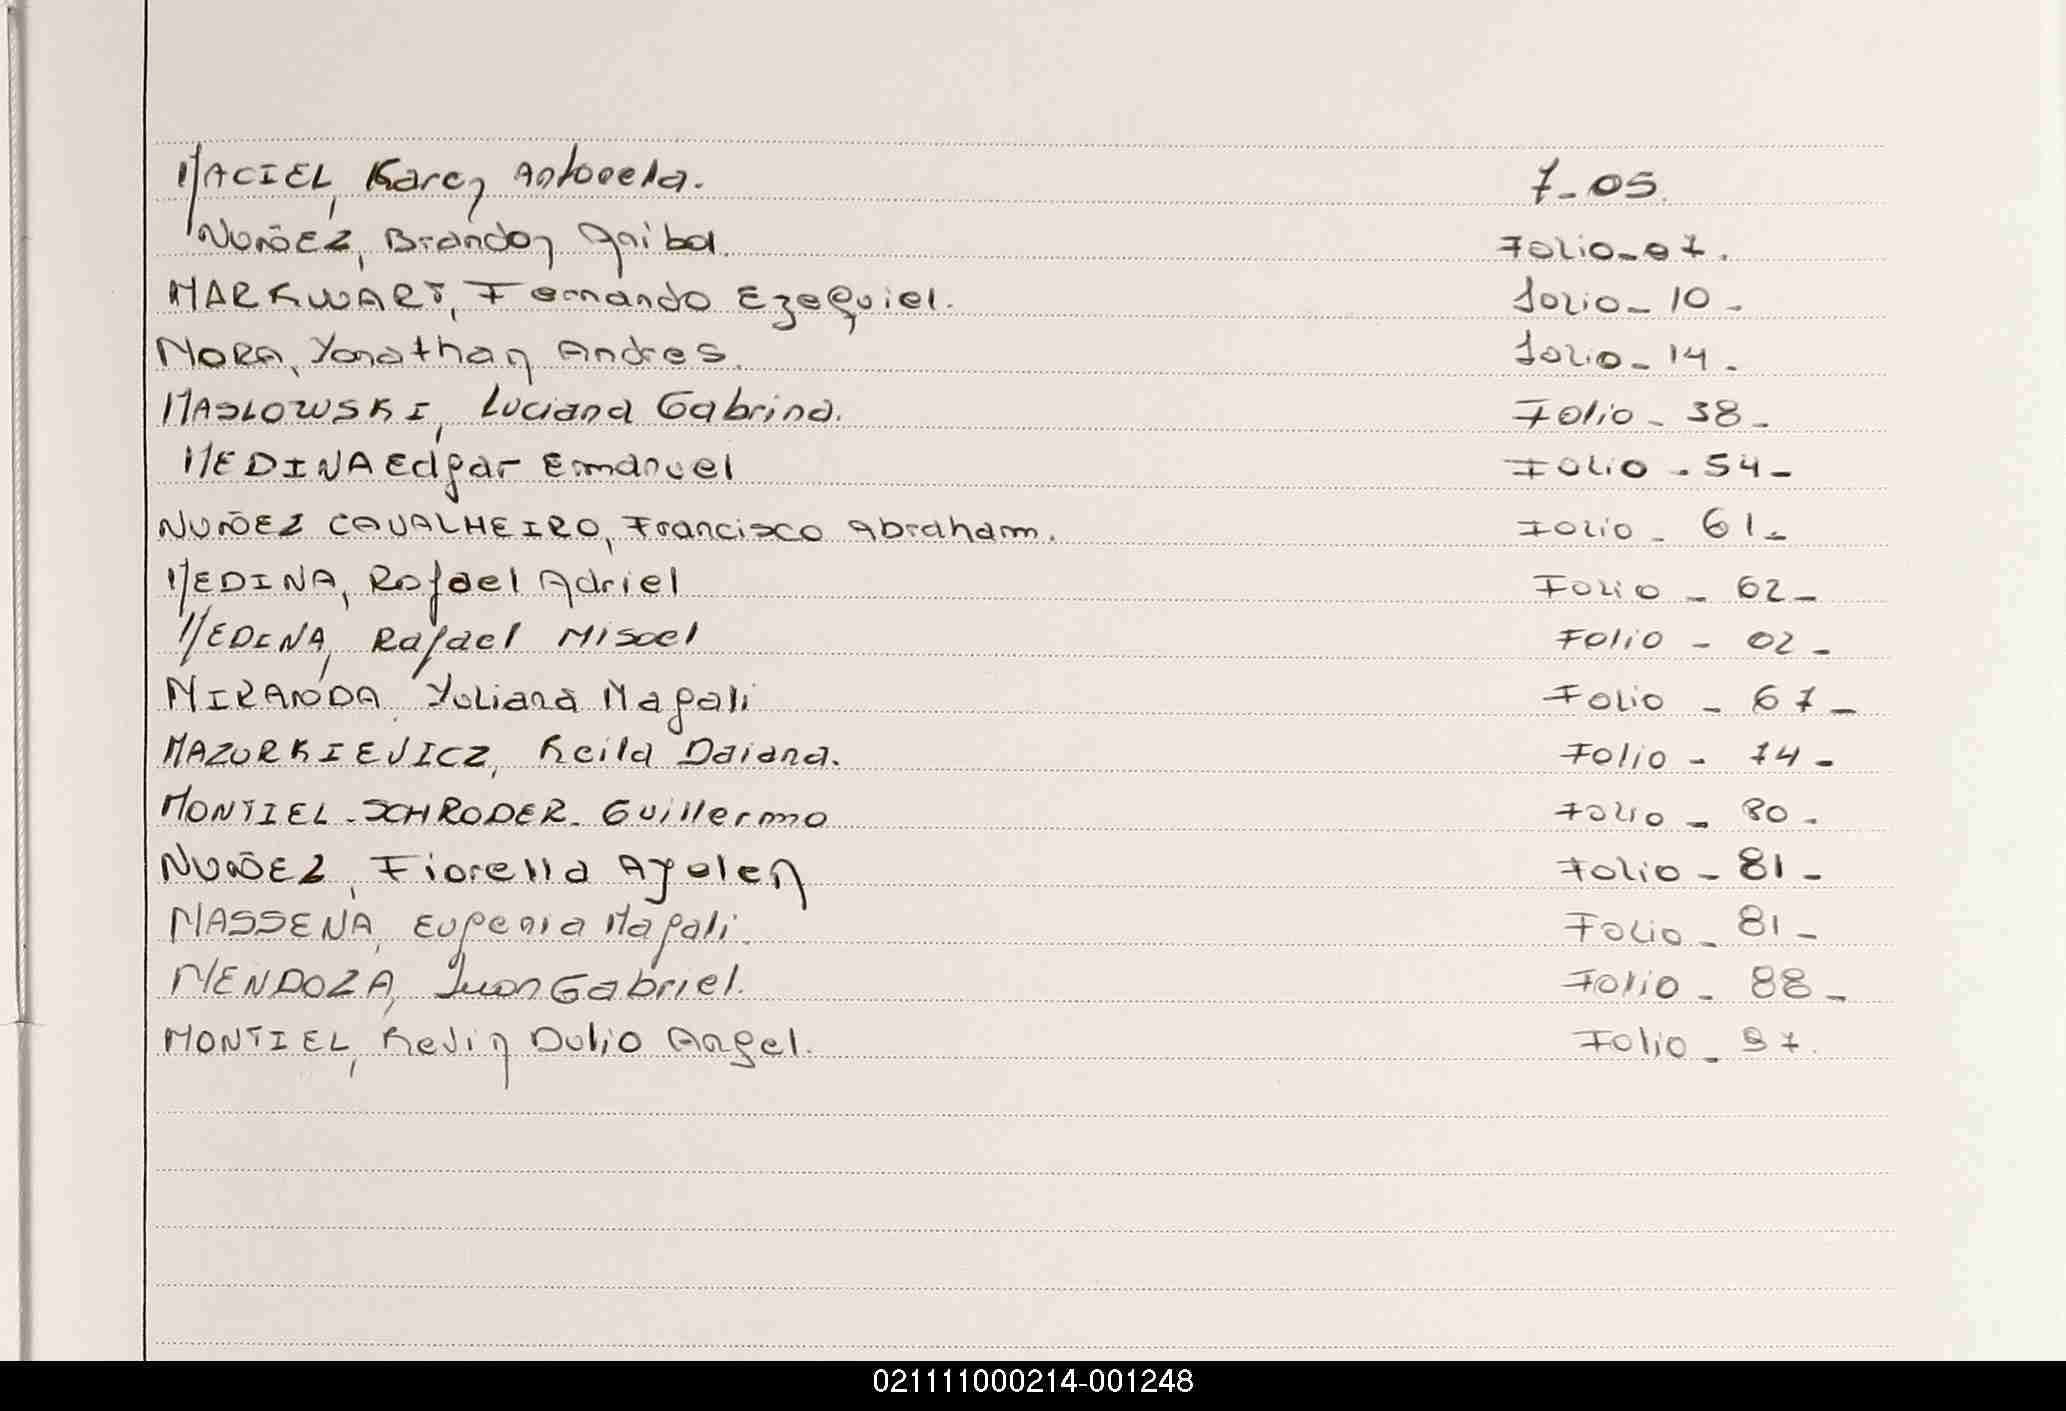 MACIEL, Karen Antonela. 7-05.
NUÑEZ, Brandon Anibal. Folio-07.
MARKWART, Fernando Ezequiel. Folio-10-
MORA, Yonathan Andres. Folio-14-
MASLOWSKI, Luciana Gabrina. Folio-38-
MEDINA Edgar Emanuel Folio-54-
NUÑEZ CAVALHEIRO, Francisco Abraham. Folio-61-
MEDINA, Rafael Adriel Folio-62-
MEDINA, Rafael Misael Folio-02-
MIRANDA, Yuliana Magali Folio-67-
MAZURKIEVICZ, Keila Daiana. Folio-74-
MONTIEL-SCHRODER. Guillermo Folio-80-
NUÑEZ, Fiorella Ayelen Folio-81-
MASSENA, Eugenia Magali. Folio-81-
MENDOZA, Juan Gabriel. Folio-88-
MONTIEL, Kevin Dulio Angel. Folio-97.
021111000214-001248